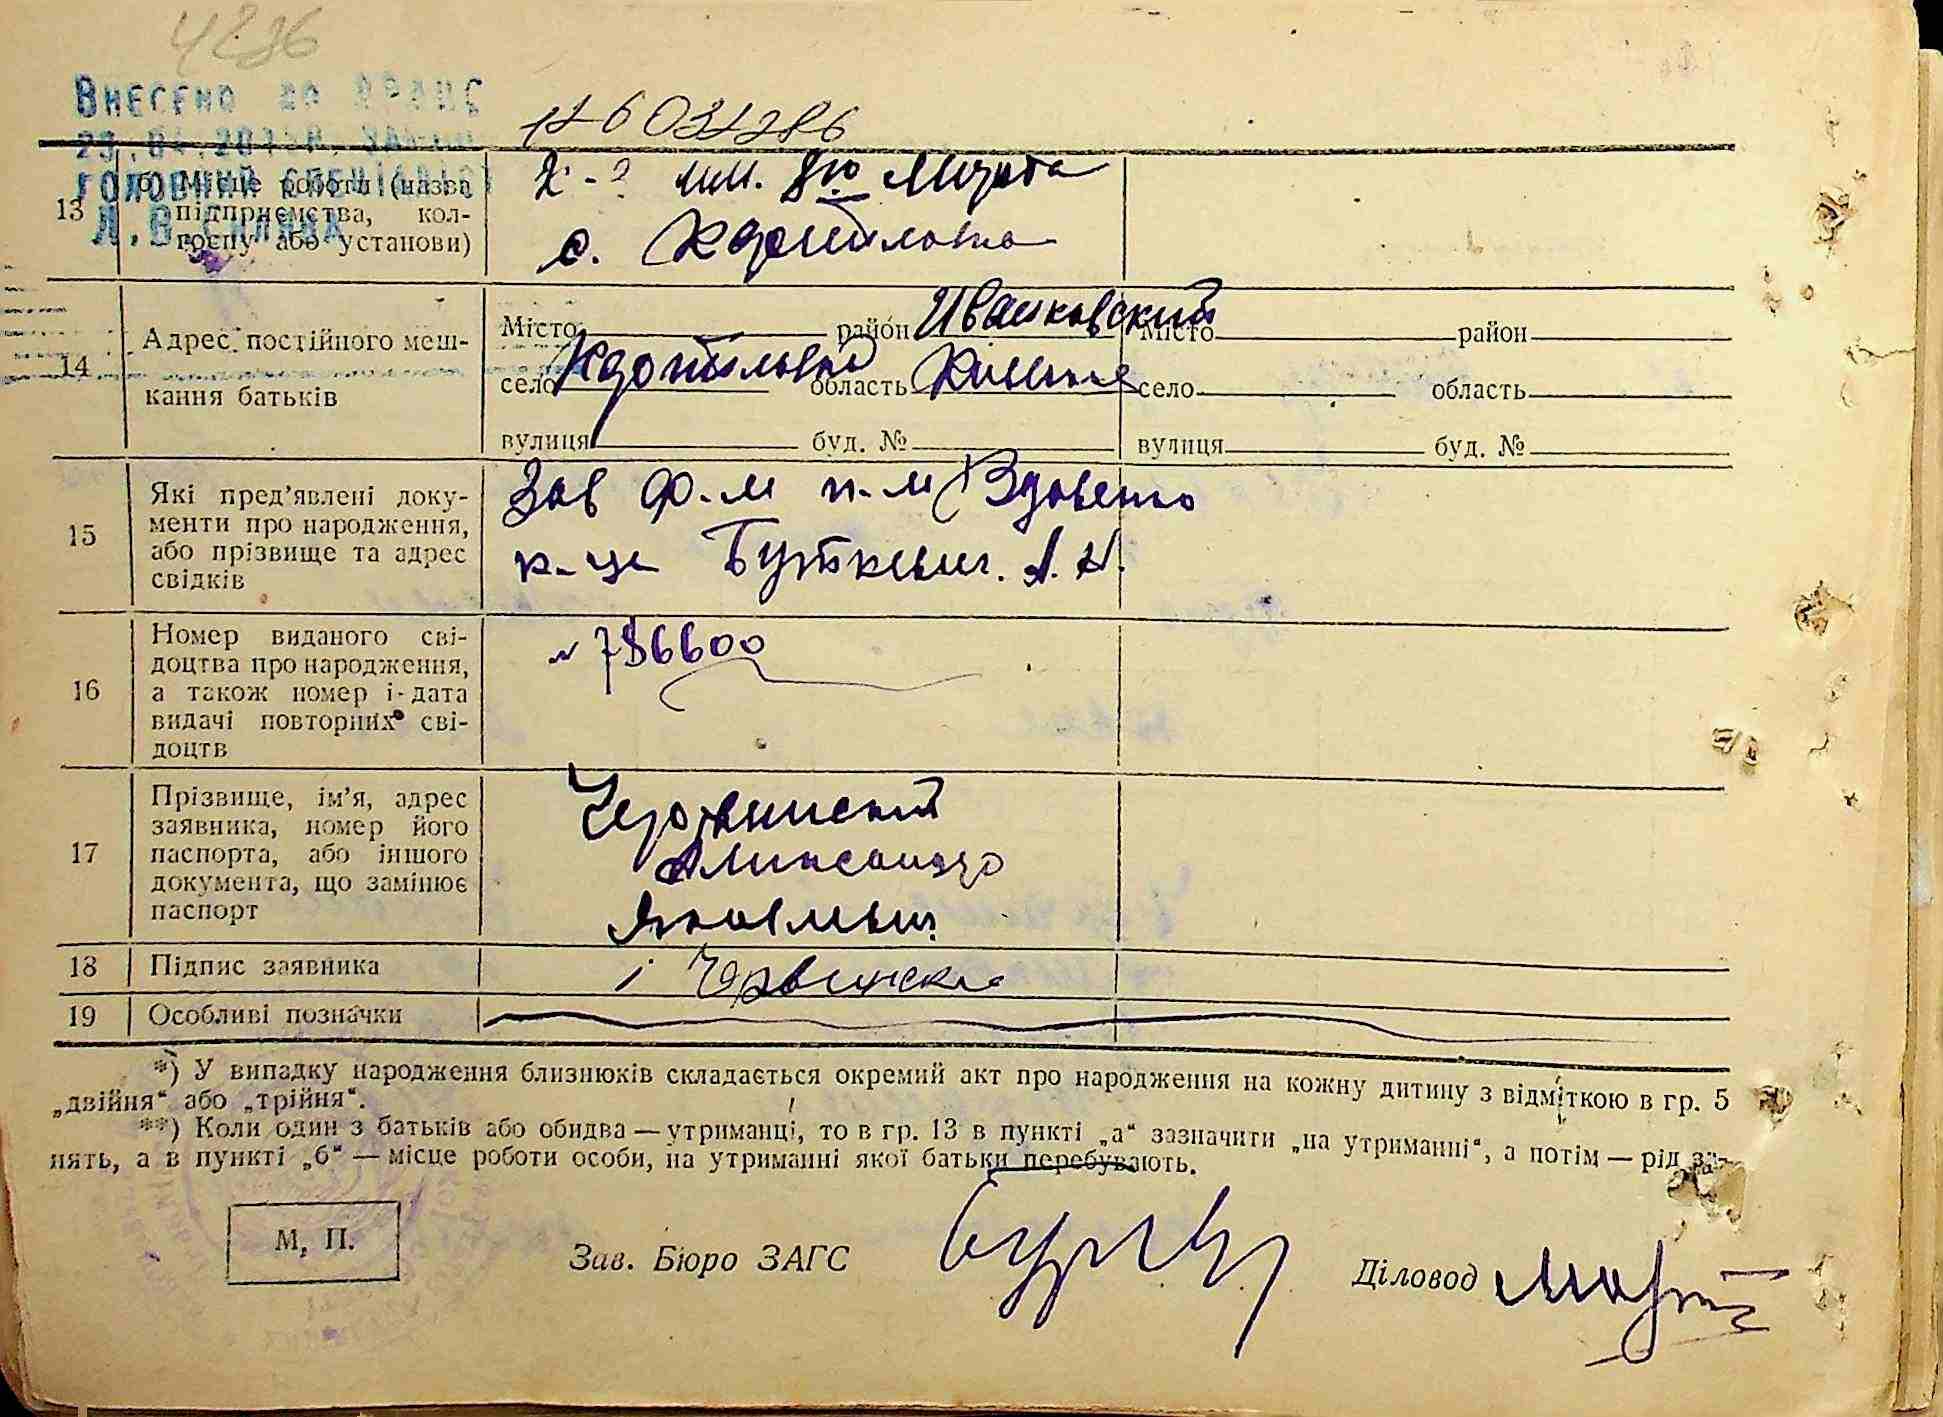 4286
Внесено до
23.04.201
головний спеціаліст
12603428б
13
б) Місце роботи (назва підприємства, колгоспу або установи)
им. 8го Марта
с. Кропивня
14
Адрес постійного мешкання батьків
Місто район Иванковский
село область
вулиця буд. №
Місто район
село область
вулиця буд. №
15
Які пред'явлені документи про народження, або прізвище та адрес свідків
Зав
16
Номер виданого свідоцтва про народження, а також номер і дата видачі повторних свідоцтв
№ 786600
17
Прізвище, ім'я, адрес заявника, номер його паспорта, або іншого документа, що замінює паспорт
Червинский
Александр
Яковлевич
18
Підпис заявника
19
Особливі позначки
*) У випадку народження близнюків складається окремий акт про народження на кожну дитину з відміткою в гр. 5
„двійня" або „трійня".
**) Коли один з батьків або обидва — утриманці, то в гр. 13 в пункті „а" зазначити „на утриманні", а потім — рід за-
нять, а в пункті „б" — місце роботи особи, на утриманні якої батьки перебувають.
М. П.
Зав. Бюро ЗАГС
Діловод